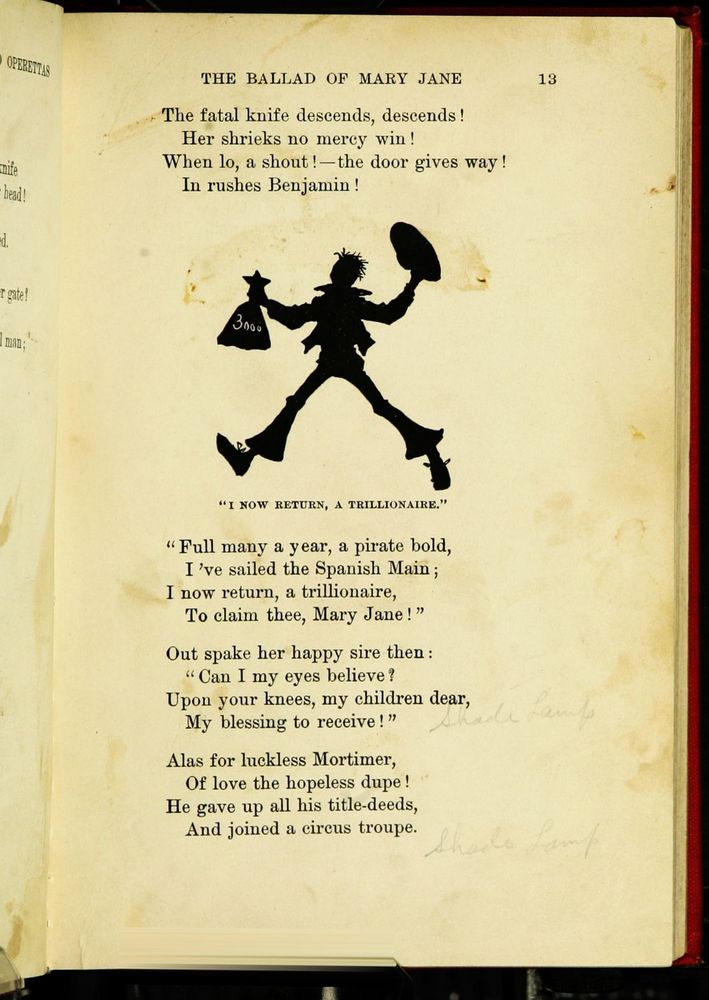 OPERETTAS
knife
head!
ed.
r gate!
l man;
THE BALLAD OF MARY JANE 13
The fatal knife descends, descends!
Her shrieks no mercy win!
When lo, a shout!—the door gives way!
In rushes Benjamin!
3000
"I NOW RETURN, A TRILLIONAIRE."
"Full many a year, a pirate bold,
I 've sailed the Spanish Main;
I now return, a trillionaire,
To claim thee, Mary Jane!"
Out spake her happy sire then:
"Can I my eyes believe?
Upon your knees, my children dear,
My blessing to receive!"
Shade Lamp
Alas for luckless Mortimer,
Of love the hopeless dupe!
He gave up all his title-deeds,
And joined a circus troupe.
Shade Lamp